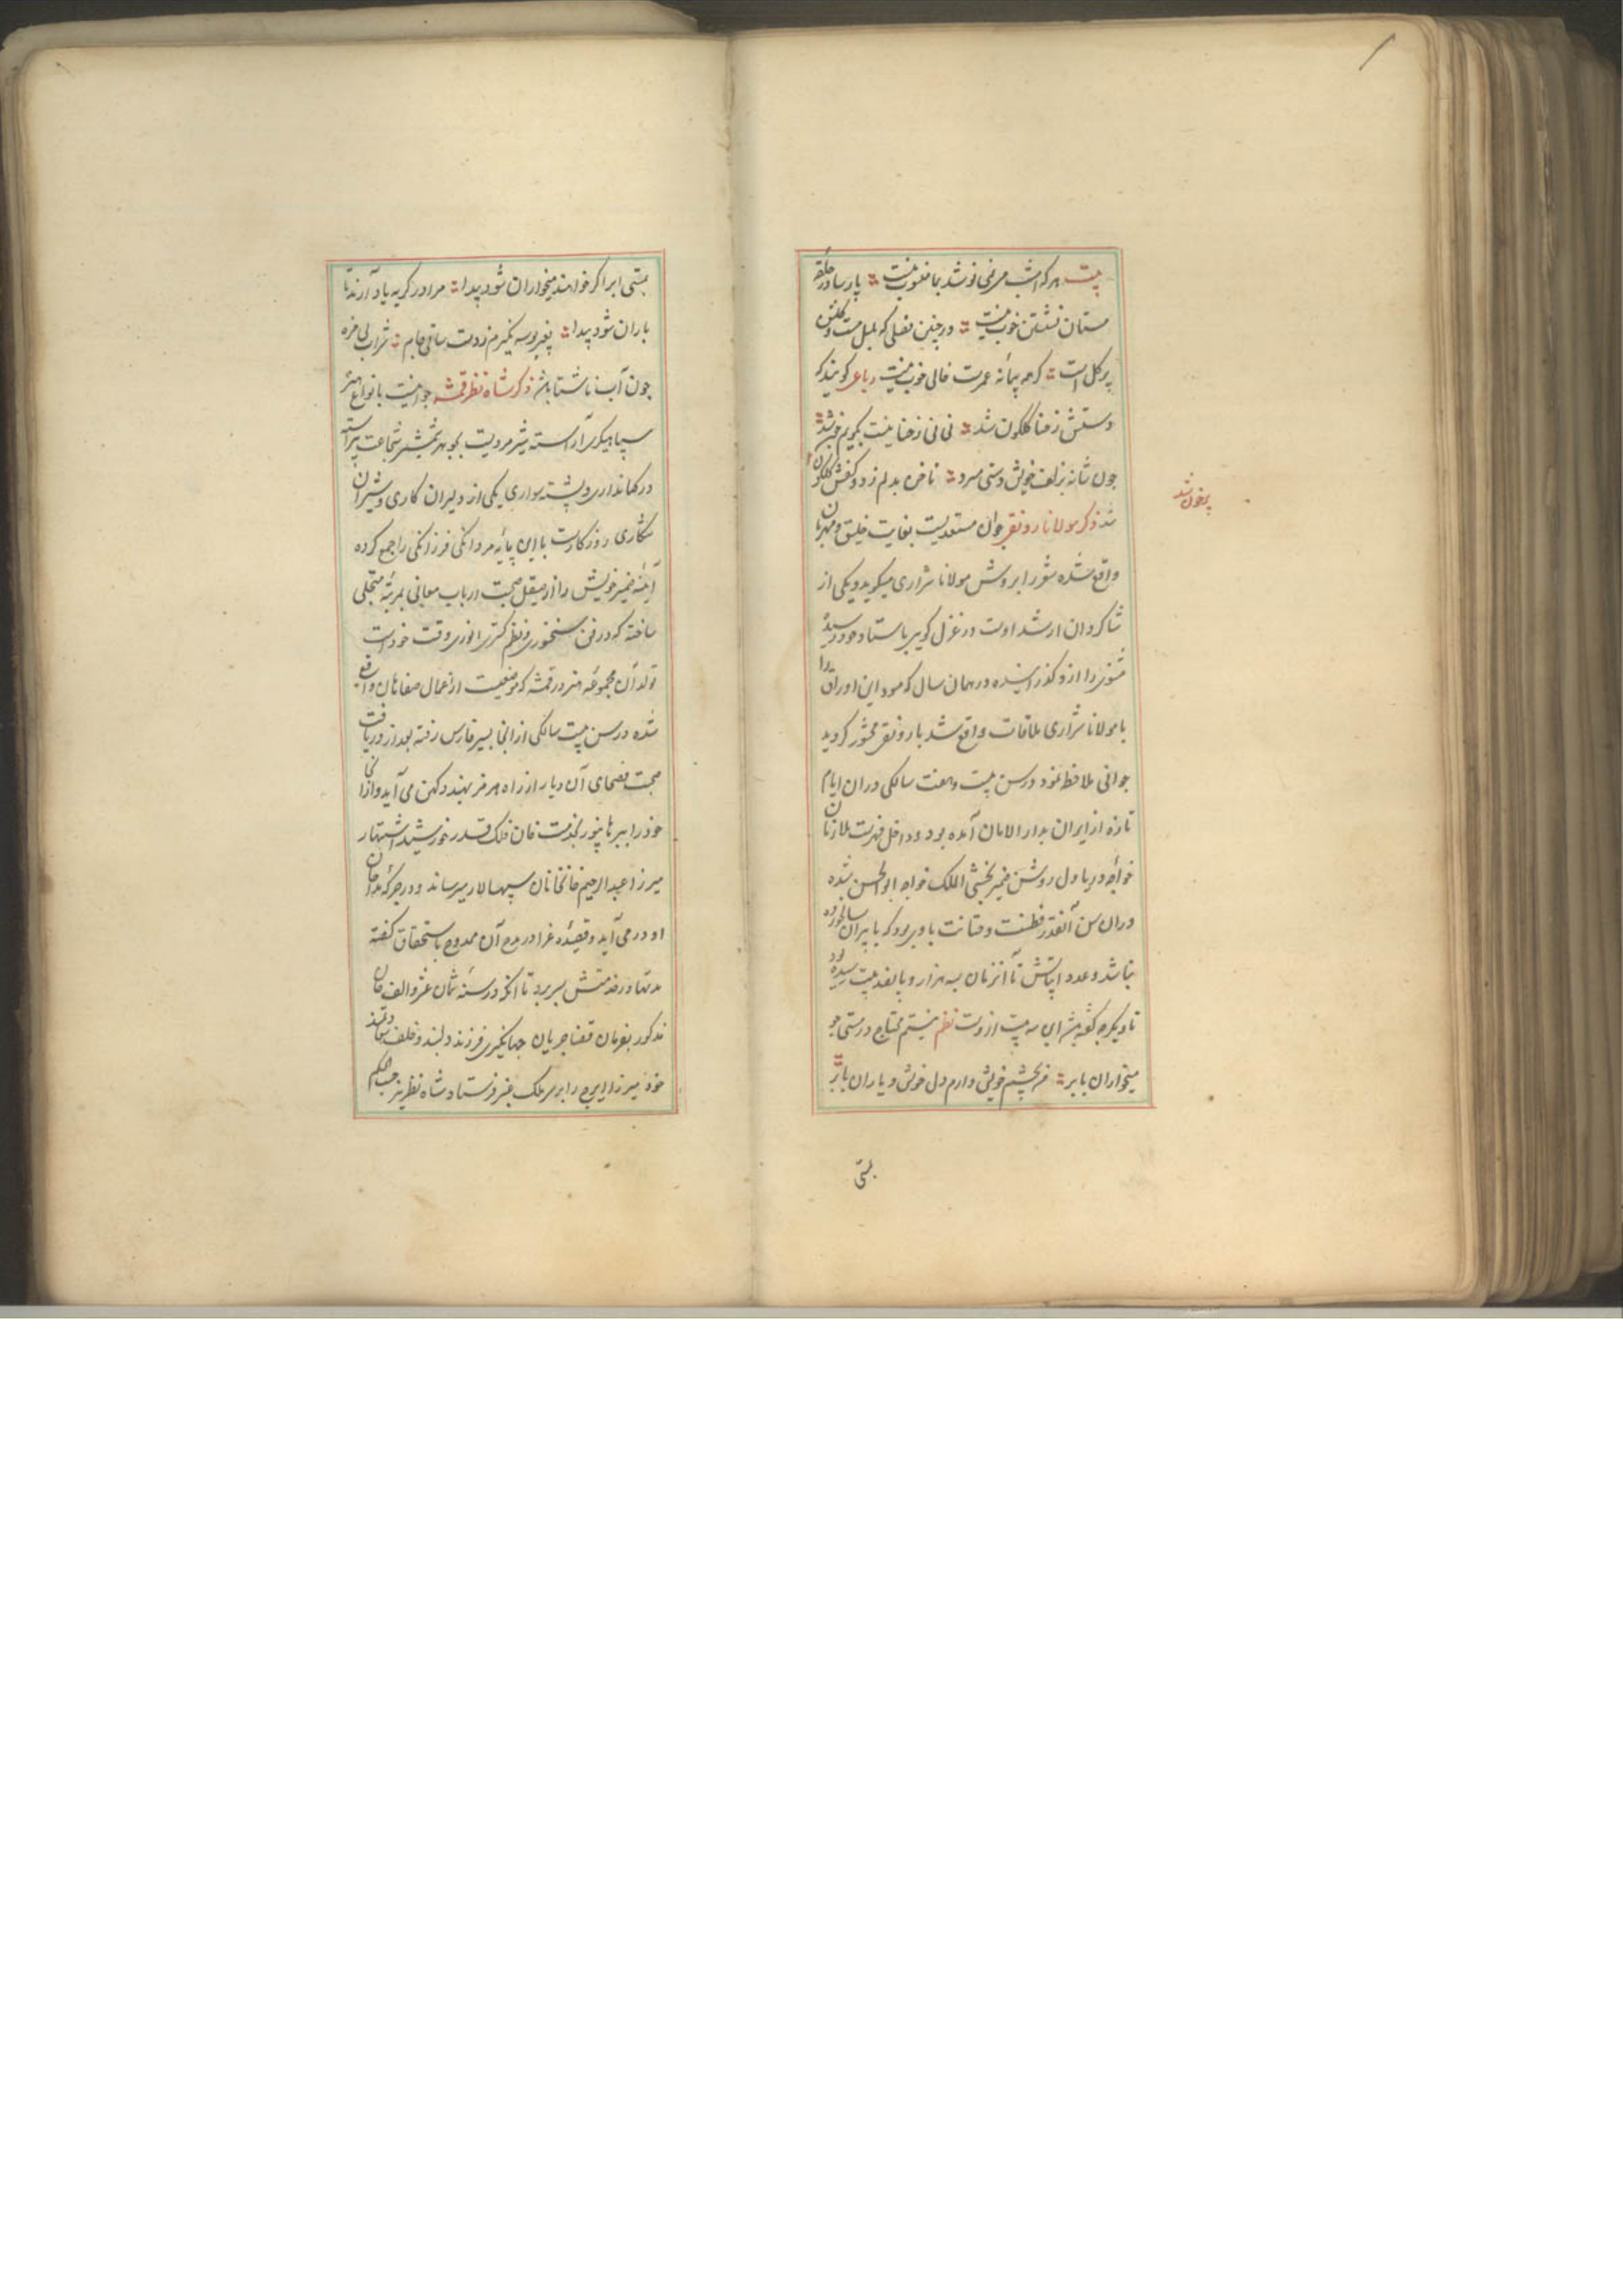 بیت هر که امشب می نمی نوشد بما منسوب نیست پارسا در حلقه
مستان نشستن خوب نیست در چنین فصلی که بلبل مست و گلشن
پر گل است گر چه پیمانه عمرت خالی خوب نیست رباعی گویند که
دستش ز حنا گلگون شد نی نی ز حنا نیست بگویم چون شد
چون شانه بزلف خویش دستی میزد ناخن بدلم زد و کفش گلگون
شد ذکر مولانا رونقی جوان مستعدیست بغایت خلیق و مهربان
پرخون شد
واقع شده شعر را بروش مولانا شراری میگوید و یکی از
شاگردان ارشد اوست در غزل گویی باستاد خود رسیده
مثنوی را ازو گذرانیده در همان سال که مسود این اوراق را
با مولانا شراری ملاقات واقع شد با رونقی محشور گردید
جوانی ملاحظه نمود در سن بیست و هفت سالگی در ان ایام
تازه از ایران بدار الامان آمده بود و داخل فهرست ملازمان
خواجه دریا دل روشن ضمیر بخشی الملک خواجه ابوالحسن شده
در ان سن آنقدر فطنت و متانت با وی بود که با پیران سالخورده
نباشد و عدد ابیاتش تا آنزمان به هزار و پانصد بیت رسیده بود
تا دیگر چه گفته باشد این سه بیت ازوست نظم نیستم محتاج در مستی به
میخواران بابر من بچشم خویش دارم دل خوش و یاران بابر
بستی
بستی ابر اگر خواهند میخواران شود پیدا مرا در گریه یاد آرند تا
باران شود پیدا بغیر بوسه نگیرم ز دست ساقی جام شراب بی مزه
چون آب ناشتا باشد ذکر شاه نظر قمشه جوانیست بانواع هنر
سپاهیگری آراسته شیر مردیست بجوهر شمشیر شجاعت پیراسته
در کمانداری و پشته سواری یکی از دلیران کاری و شیران
شکاری روزگارست با این پایه مردانگی فرزانگی را جمع کرده
آینه ضمیر خویش را از صیقل صحبت ارباب معانی بمرتبه متجلی
ساخته که در فن سخنوری و نظم گستری انوری وقت خود است
تولد آن مجموعه هنر در قمشه که موضعیست از اعمال صفاهان واقع
شده در سن بیست سالگی از انجا بسیر فارس رفته بعد از دریافت
صحبت فصحای آن دیار از راه هرمز بهند دکهن می آید و از انجا
خود را ببرهانپور بخدمت خان فلک قدر خورشید اشتهار
میرزا عبد الرحیم خانخانان سپهسالار میرساند و در جرگه مداحان
او در می آید و قصیده غرا در مدح آن ممدوح باستحقاق گفته
مدتها در خدمتش بسر برد تا آنکه در سنه ثمان عشر و الف خان
مذکور بفرمان قضا جریان جهانگیری فرزند دلبند و خلف سعادتمند
خود میرزا ایرج را بر سر ملک عنبر فرستاد شاه نظر نیز حسب الحکم